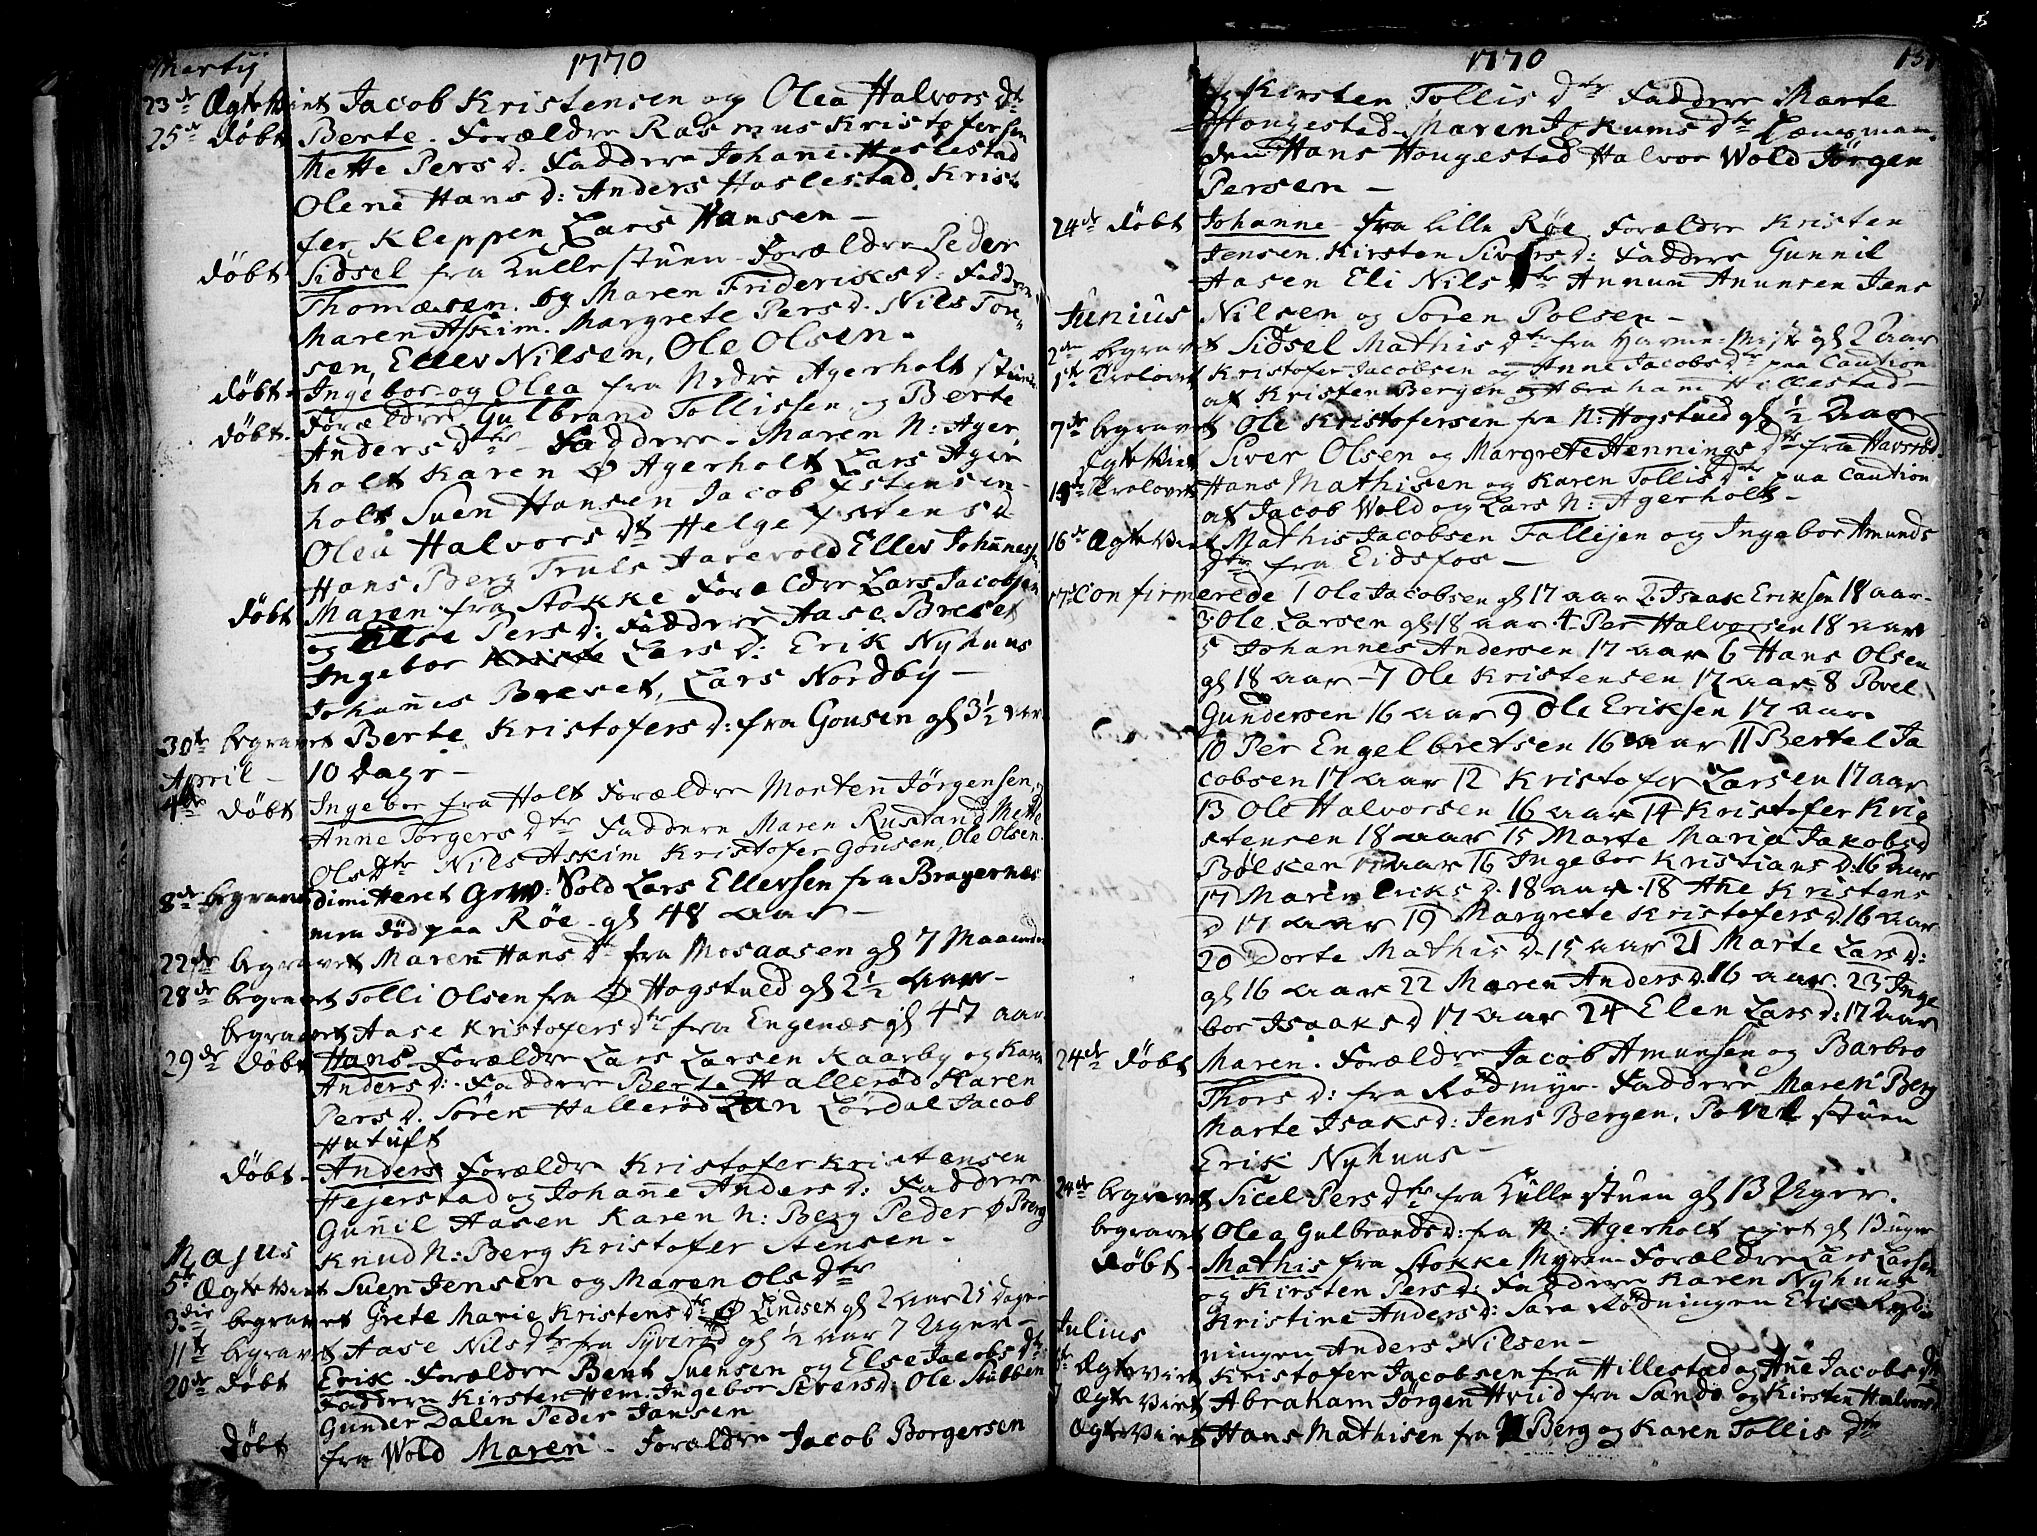 Martij
1770
23de Ægte Viet Jacob Kristensen og Olea Halvors dt
25de døbt Berte. Forældre Rasmus Kristofersen
Mette Pers d. Faddere Johane Haslestad
Olene Hans d: Anders Haslestad Krist
fer Kleppen Lars Hansen –
døbt Sidsel fra Kullestuen Forældre Peder
Thomæsen og Maren Frideriks d: Faddere
Maren Askim. Margrete Pers d. Nils Ton-
sen, Ellev Nilsen, Ole Olsen.
døbt Ingebor og Olea fra Nedre Agerholt
døbt. Forældre Gulbrand Tollissen og Berte
Anders Dtr – Faddere – Maren N: Ager
holt Karen Ø Agerholt Lars Ager
holt Suen Hansen Jacob Estensen
Olea Halvors Dt Helge Estens d
Hans Berg Truls Aarevold Ellev Johanness
døbt Maren fra Stokke Forældre Lars Jacobsen
og Else Pers d: Faddere Aase Breset
Ingebor Lars d: Erik Nyhuus
Johanes Breset, Lars Nordby –
30te begravet Berte Kristofers d: fra Gousen gl 3½ aar
April – 10 dage –
4de døbt Ingebor fra Holt Forældre Morten Jørgensen,
Anne Torgers dtr Faddere Maren Rustand Mette
Ols dtr Nils Askim Kristofer Gousen, Ole Olsen
8de begravet dimitteret Gew: Sold Lars Ellevsen fra Bragernæs
men død paa Røe – gl 48 aar –
22de begravet Maren Hans dt fra Mosaasen gl 7 Maaneder
28de begravet Tolli Olsen fra Ø Hogstued gl 2½ aar –
begravet Aase Kristofers dtr fra Engenæs gl 47 aar
29de døbt Hans. Forældre Lars Larsen Kaarby og Karen
Anders d: Faddere Berte Hallerød Karen
Pers d. Søren Hallerød Lørdal Jacob
Hatuft
døbt – Anders Forældre Kristofer Kristensen
Hejerstad og Johane Anders d: Faddere
Gunil Aasen Karen N: Berg Peder Ø Berg
Majus Knud N: Berg Kristofer Stensen –
5te Ægte Viet Suen Jensen og Maren Ols dtr
3die begravet Grete Marie Kristens dtr Ø Lindset gl 2 aar 21 dage
11te begravet Aase Nils dtr fra Syverød gl ½ aar 7 Uger –
20de døbt Erik. Forældre Bent Suensen og Else Jacobs dt
Faddere Kirsten Hem. Ingebor Sivers d: Ole Stubben
Gunder Dalen Peder Jansen
døbt fra Wold Maren – Forældre Jacob Borgersen
1770
131
og Kirsten Tollis dtr Faddere Marte
Hougestad Maren Jokums dtr Lænsman
den Hans Hougestad Halvor Wold Jørgen
Persen –
24de døbt Johanne fra lille Røe. Forældre Kristen
Jensen. Kirsten Sivers d: Faddere Gunnil
Aasen Eli Nils dtr Annun Anunsen Jens
Junius Nilsen og Soren Polsen –
2den begravet Sidsel Mathis dtr fra gl 2 aar
1te Trolovet Kristofer Jacobsen og Anne Jacobs dtr paa Caution
af Kristen Bergen og Abraham Hillestad –
7de begravet Ole Kristofersen fra N: Hogstued gl ½ Aar –
Ægte Viet Siver Olsen og Margrete Hennings dtr fra Havsrød
Trolovet Hans Mathisen og Karen Tollis dtr paa Caution
af Jacob Wold og Lars N: Agerholt –
16de Ægte Viet Mathis Jacobsen Follejen og Ingebor Amunds
dtr fra Eidsfos –
17de Confirmerede 1 Ole Jacobsen gl 17 aar 2. Isaak Eriksen 18 aar.
3 Ole Larsen gl 18 aar 4 Per Halvorsen 18 aar
5 Johannes Andersen 17 aar 6 Hans Olsen
gl 18 aar – 7 Ole Kristensen 17 aar 8 Povel
Gundersen 16 aar 9 Ole Eriksen 17 aar
10 Per Engelbretsen 16 aar 11 Bertel Ja
cobsen 17 aar 12 Kristofer Larsen 17 aar
13 Ole Halvorsen 16 aar 14 Kristofer Kri
stensen 18 aar 15 Marte Maria Jakobs d
Bølsker 17 aar 16 Ingebor Kristians d. 16 aar
17 Maren Eriks d. 18 aar. 18 Ane Kristens
d 17 aar 19 Margrete Kristofers d. 16 aar
20 Dorte Mathis d. 15 aar 21 Marte Lars d:
gl 16 aar 22 Maren Anders d. 16 aar. 23 Inge
bor Isaaks d 17 aar 24 Elen Lars d: 17 Aar
24de døbt Maren. Forældre Jacob Amunsen og Barbro
Thors d: fra Rødmyr. Faddere Maren Berg
Marte Isaks d: Jens Bergen, Povel Stuen
Erik Nyhuus –
24de begravet Sicel Pers dtr fra Kullestuen gl 13 Uger.
begravet Olea Gulbrands d: fra N: Agerholt gl 13 uger
døbt – Mathis fra Stokke Myren – Forældre Lars Larsen
og Kirsten Pers d: Faddere Karen Nyhuus
Kristine Anders d: Sara Rødningen Erik Rød
Julius ningen Anders Nilsen –
Ægte Viet Kristofer Jacobsen fra Hillestad og Ane Jacobs dt
Ægte Viet Abraham Jørgen Hviid fra Sande og Kirsten Halvors d
Ægte Viet Hans Mathisen fra N Berg og Karen Tollis dtr